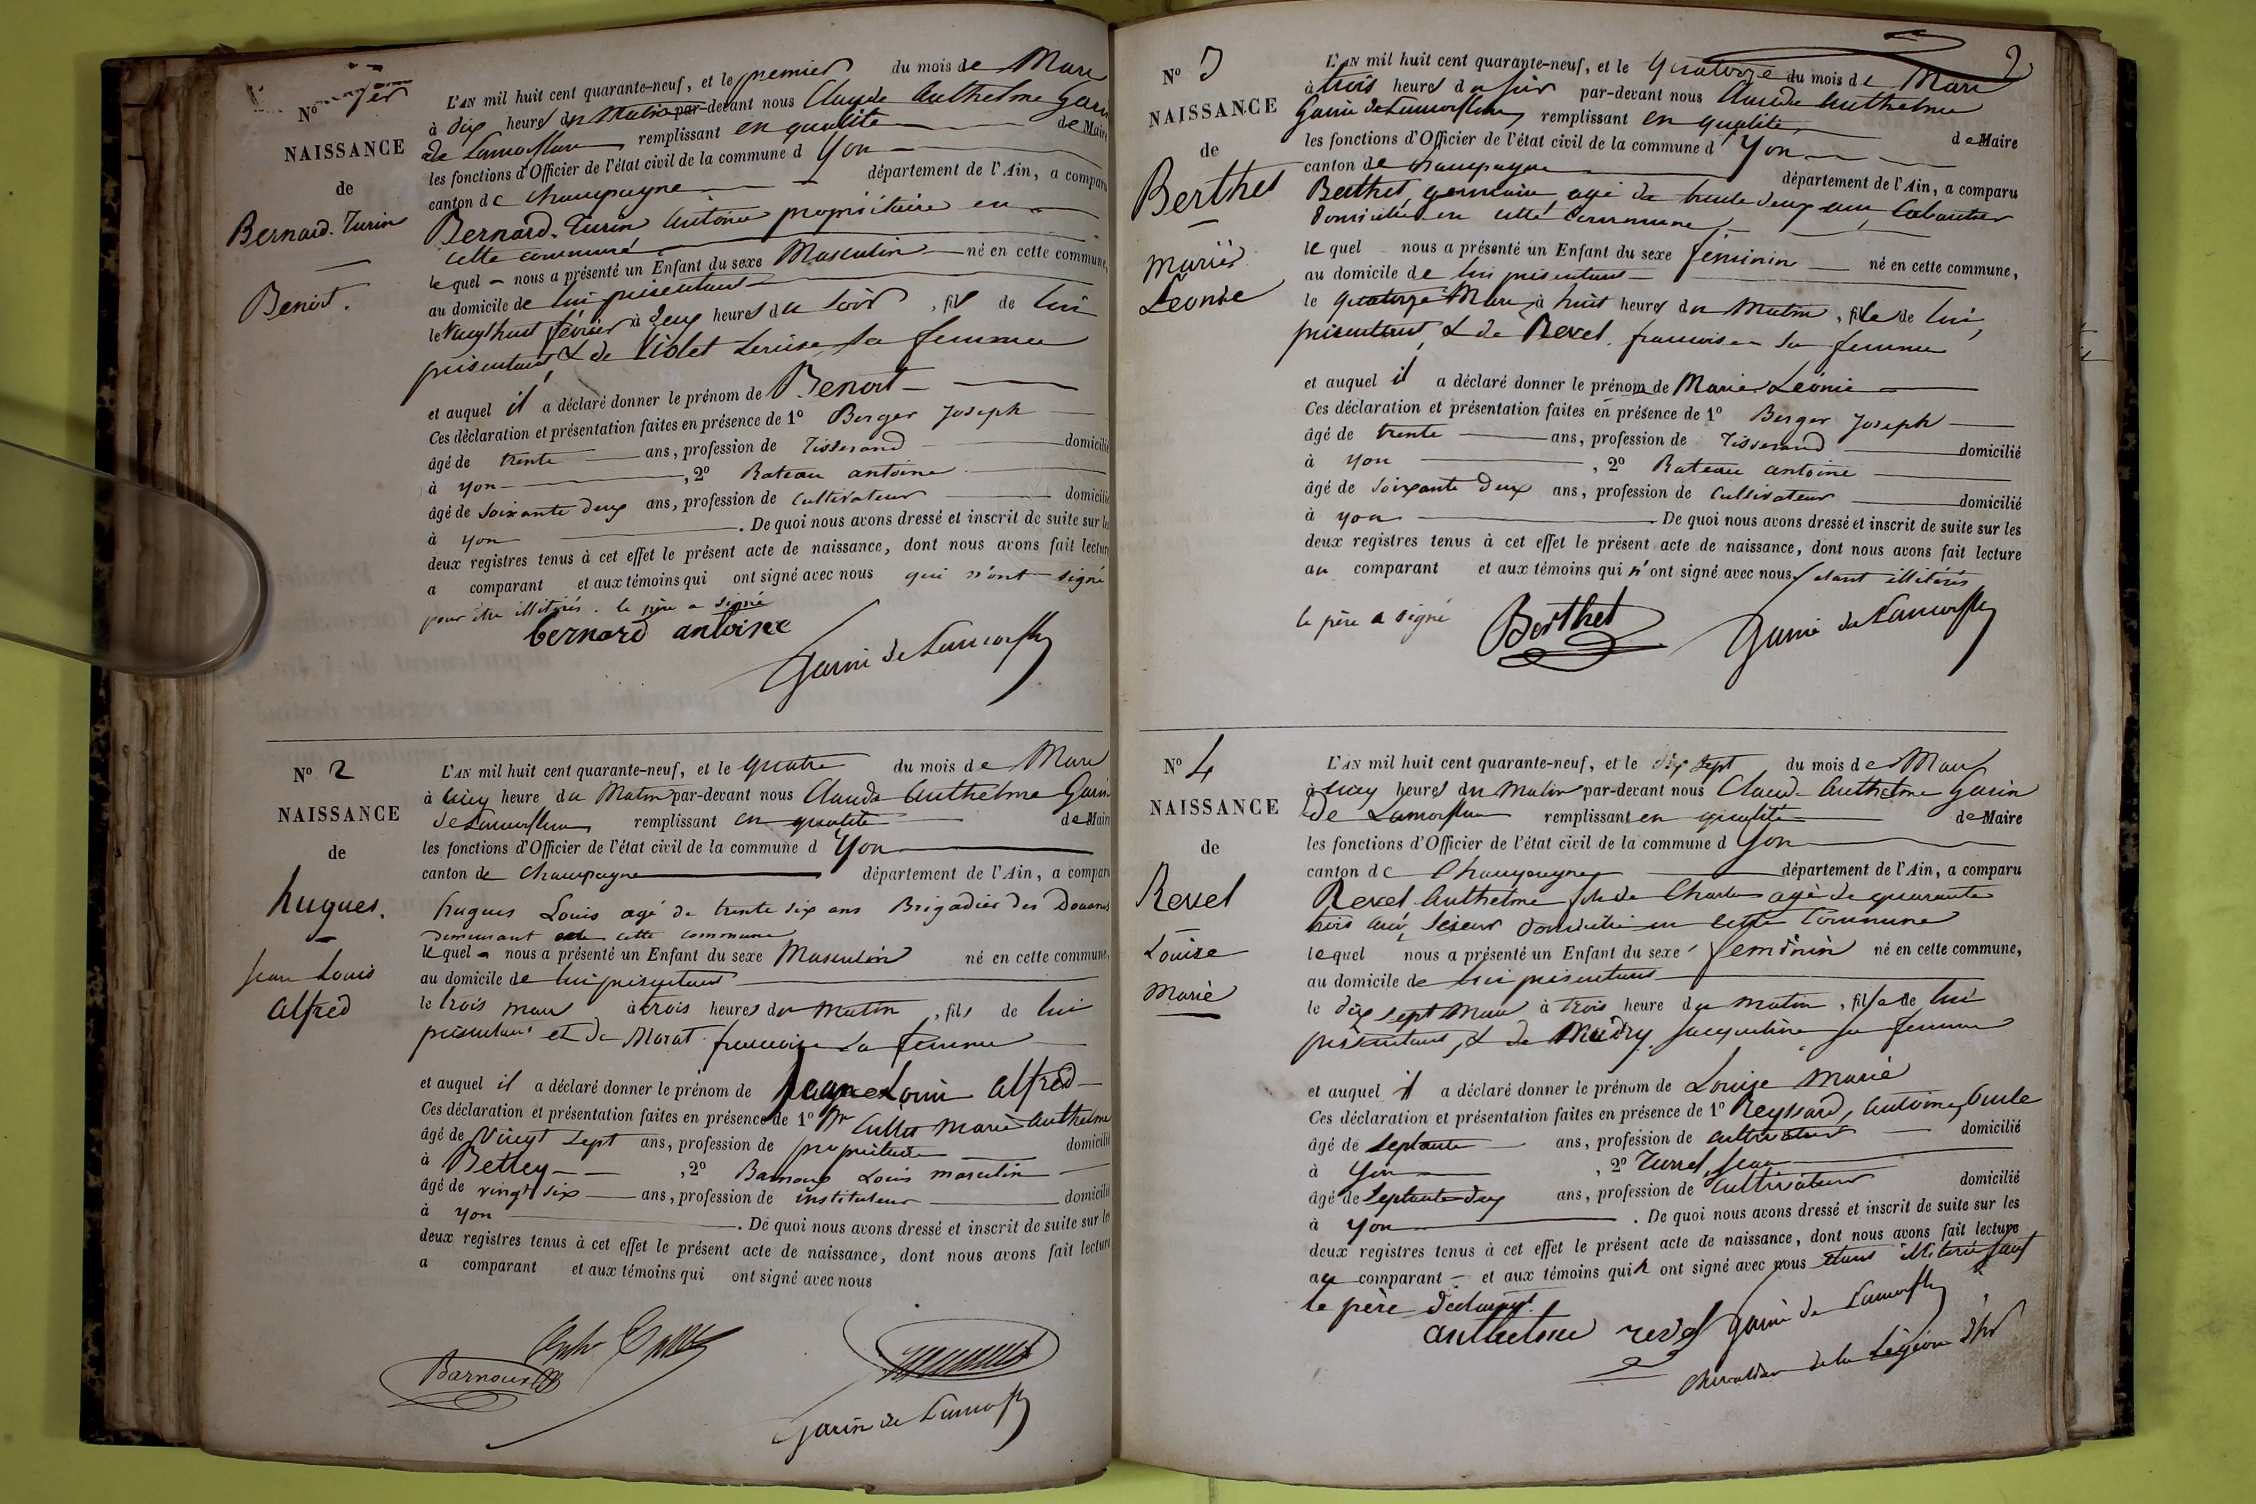 No 1er
NAISSANCE
de
Bernard-Turin
Benoit.
L'AN mil huit cent quarante-neuf, et le premier du mois de Mars
à dix heures du Matin par-devant nous Claude Anthelme Garin
de Lamorflan remplissant en qualité de Maire
les fonctions d'Officier de l'état civil de la commune d Yon
canton de Champagne département de l'Ain, a comparu
Bernard-Turin Antoine propriétaire en
cette commune
lequel nous a présenté un Enfant du sexe Masculin né en cette commune,
au domicile de lui présentant
le Vingt huit février à deux heures du soir, fils de lui
présentant & de Violet Louise sa femme
et auquel il a déclaré donner le prénom de Benoit
Ces déclaration et présentation faites en présence de 1o Berger Joseph
âgé de trente ans, profession de Tisserand domicilié
à yon, 2o Rateau antoine
âgé de soixante deux ans, profession de cultivateur domicilié
à yon. De quoi nous avons dressé et inscrit de suite sur les
deux registres tenus à cet effet le présent acte de naissance, dont nous avons fait lecture
a comparant et aux témoins qui ont signé avec nous qui n'ont signé
pour être illitérés. le père a signé
bernard antoine
Garin de Lamorflan
No 2
NAISSANCE
de
hugues.
Jean Louis
alfred
L'AN mil huit cent quarante-neuf, et le quatre du mois de Mars
à cinq heure du Matin par-devant nous Claude Anthelme Garin
de Lamorflan remplissant en qualité de Maire
les fonctions d'Officier de l'état civil de la commune d Yon
canton de Champagne département de l'Ain, a comparu
hugues Louis agé de trente six ans Brigadier des Douanes
demeurant cette commune
lequel nous a présenté un Enfant du sexe Masculin né en cette commune,
au domicile de lui présentant
le trois mars à trois heures du matin, fils de lui
présentant et de Morat françoise sa femme
et auquel il a déclaré donner le prénom de Jean Louis alfred
Ces déclaration et présentation faites en présence de 1o Mr Cullet Marie Anthelme
âgé de Vingt sept ans, profession de propriétaire domicilié
à Belley, 2o Barnoux Louis marcelin
âgé de vingt six ans, profession de instituteur domicilié
à yon. De quoi nous avons dressé et inscrit de suite sur les
deux registres tenus à cet effet le présent acte de naissance, dont nous avons fait lecture
a comparant et aux témoins qui ont signé avec nous
Barnoux
Garin de Lamorflan
2
No 3
NAISSANCE
de
Berthet
Marie
Léonie
L'AN mil huit cent quarante-neuf, et le quatorze du mois de Mars
à trois heures du soir par-devant nous Claude Anthelme
Garin de Lamorflan remplissant en qualité de Maire
les fonctions d'Officier de l'état civil de la commune d Yon
canton de Champagne département de l'Ain, a comparu
Berthet germain agé de trente deux ans, Cabaretier
domicilié en cette Commune
lequel nous a présenté un Enfant du sexe féminin né en cette commune,
au domicile de lui présentant
le quatorze Mars à huit heures du Matin, fille de lui
présentant, & de Revel françoise sa femme
et auquel il a déclaré donner le prénom de Marie Léonie
Ces déclaration et présentation faites en présence de 1o Berger Joseph
âgé de trente ans, profession de Tisserand domicilié
à yon, 2o Rateau antoine
âgé de soixante deux ans, profession de cultivateur domicilié
à yon. De quoi nous avons dressé et inscrit de suite sur les
deux registres tenus à cet effet le présent acte de naissance, dont nous avons fait lecture
au comparant et aux témoins qui n'ont signé avec nous étant illitérés
le père a signé Berthet Garin de Lamorflan
No 4
NAISSANCE
de
Revel
Louise
Marie
L'AN mil huit cent quarante-neuf, et le dix sept du mois de Mars
à heures du matin par-devant nous Claude Anthelme Garin
de Lamorflan remplissant en qualité de Maire
les fonctions d'Officier de l'état civil de la commune d Yon
canton de Champagne département de l'Ain, a comparu
Revel Anthelme fils de Charles agé de quarante
trois ans, domicilié en cette Commune
lequel nous a présenté un Enfant du sexe féminin né en cette commune,
au domicile de lui présentant
le dix sept Mars à trois heure du matin, fille de lui
présentant, & de Jacqueline sa femme
et auquel il a déclaré donner le prénom de Louise Marie
Ces déclaration et présentation faites en présence de 1o Reyssard, Antoine
âgé de septante ans, profession de cultivateur domicilié
à Yon, 2o Turrel Jean
âgé de septante deux ans, profession de cultivateur domicilié
à Yon. De quoi nous avons dressé et inscrit de suite sur les
deux registres tenus à cet effet le présent acte de naissance, dont nous avons fait lecture
au comparant et aux témoins qui n ont signé avec nous étant illitérés sauf
le père déclarant.
anthelme revel Garin de Lamorflan
chevalier de la Légion d'hr